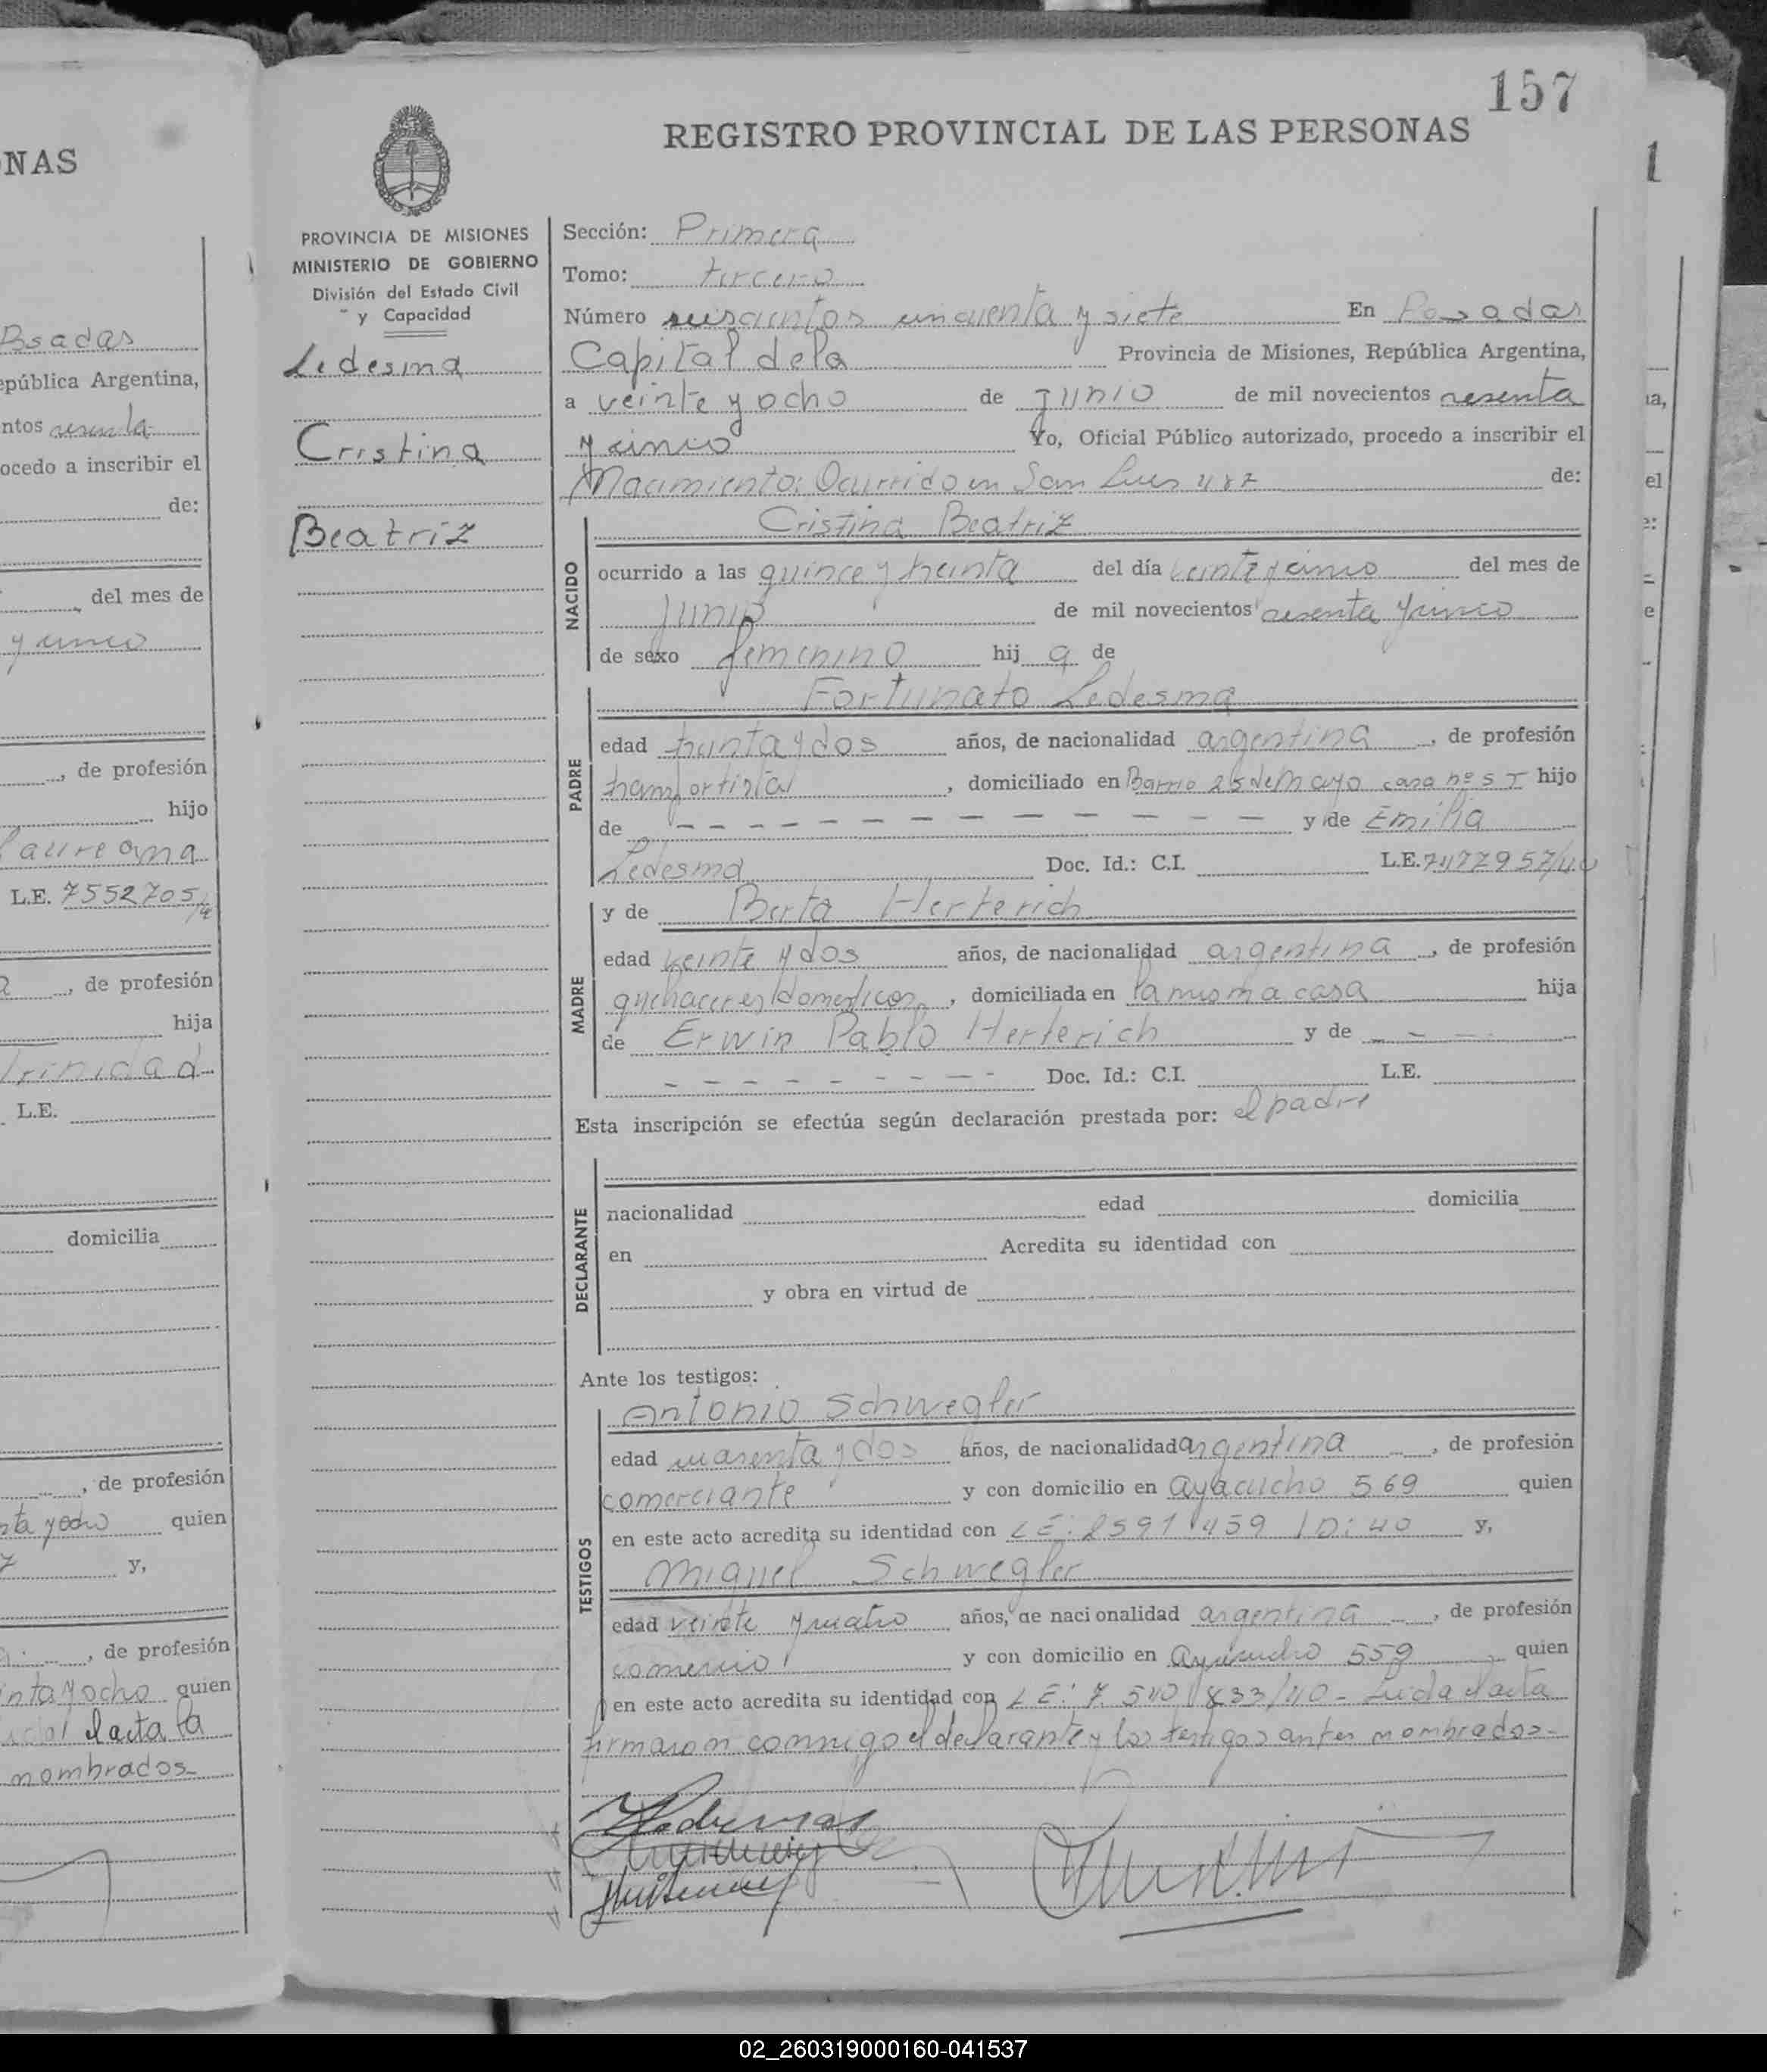 157
REGISTRO PROVINCIAL DE LAS PERSONAS
PROVINCIA DE MISIONES
MINISTERIO DE GOBIERNO
División del Estado Civil
y Capacidad
Ledesma
Cristina
Beatriz
Sección: Primera
Tomo: tercero
Número seiscientos cincuenta y siete En Posadas
Capital de la Provincia de Misiones, República Argentina,
a veinte y ocho de Junio de mil novecientos sesenta
y cinco Yo, Oficial Público autorizado, procedo a inscribir el
Nacimiento: Ocurrido en San Luis 487 de:
NACIDO
Cristina Beatriz
ocurrido a las quince y treinta del día veinte y cinco del mes de
Junio de mil novecientos sesenta y cinco
de sexo femenino hij a de
PADRE
Fortunato Ledesma
edad treinta y dos años, de nacionalidad argentina, de profesión
transportista, domiciliado en Barrio 25 de Mayo casa nº 5 hijo
de — — — — — — — — — — — — y de Emilia
Ledesma Doc. Id.: C.I. L.E. 7477957/40
y de Berta Herterich
MADRE
edad veinte y dos años, de nacionalidad argentina, de profesión
quehaceres domesticos, domiciliada en la misma casa hija
de Erwin Pablo Herterich y de — —
— — — — — — — — Doc. Id.: C.I. L.E.
Esta inscripción se efectúa según declaración prestada por: el padre
DECLARANTE
nacionalidad edad domicilia
en Acredita su identidad con
y obra en virtud de
Ante los testigos:
TESTIGOS
Antonio Schwegler
edad cuarenta y dos años, de nacionalidad argentina, de profesión
comerciante y con domicilio en Ayacucho 569 quien
en este acto acredita su identidad con LE: 2591459 D: 40 y,
Miguel Schwegler
edad veinte y cuatro años, de nacionalidad argentina, de profesión
comercio y con domicilio en Ayacucho 559 quien
en este acto acredita su identidad con LE: 7.540.833/40 - Leida el acta
firmaron conmigo el declarante y los testigos antes nombrados-
NAS
Posadas
epública Argentina,
ntos sesenta
ocedo a inscribir el
de:
del mes de
y cinco
, de profesión
hijo
Laureana
L.E. 7552705
, de profesión
hija
Trinidad
L.E.
domicilia
, de profesión
quien
y,
, de profesión
quien
el acta la
nombrados-
02_260319000160-041537